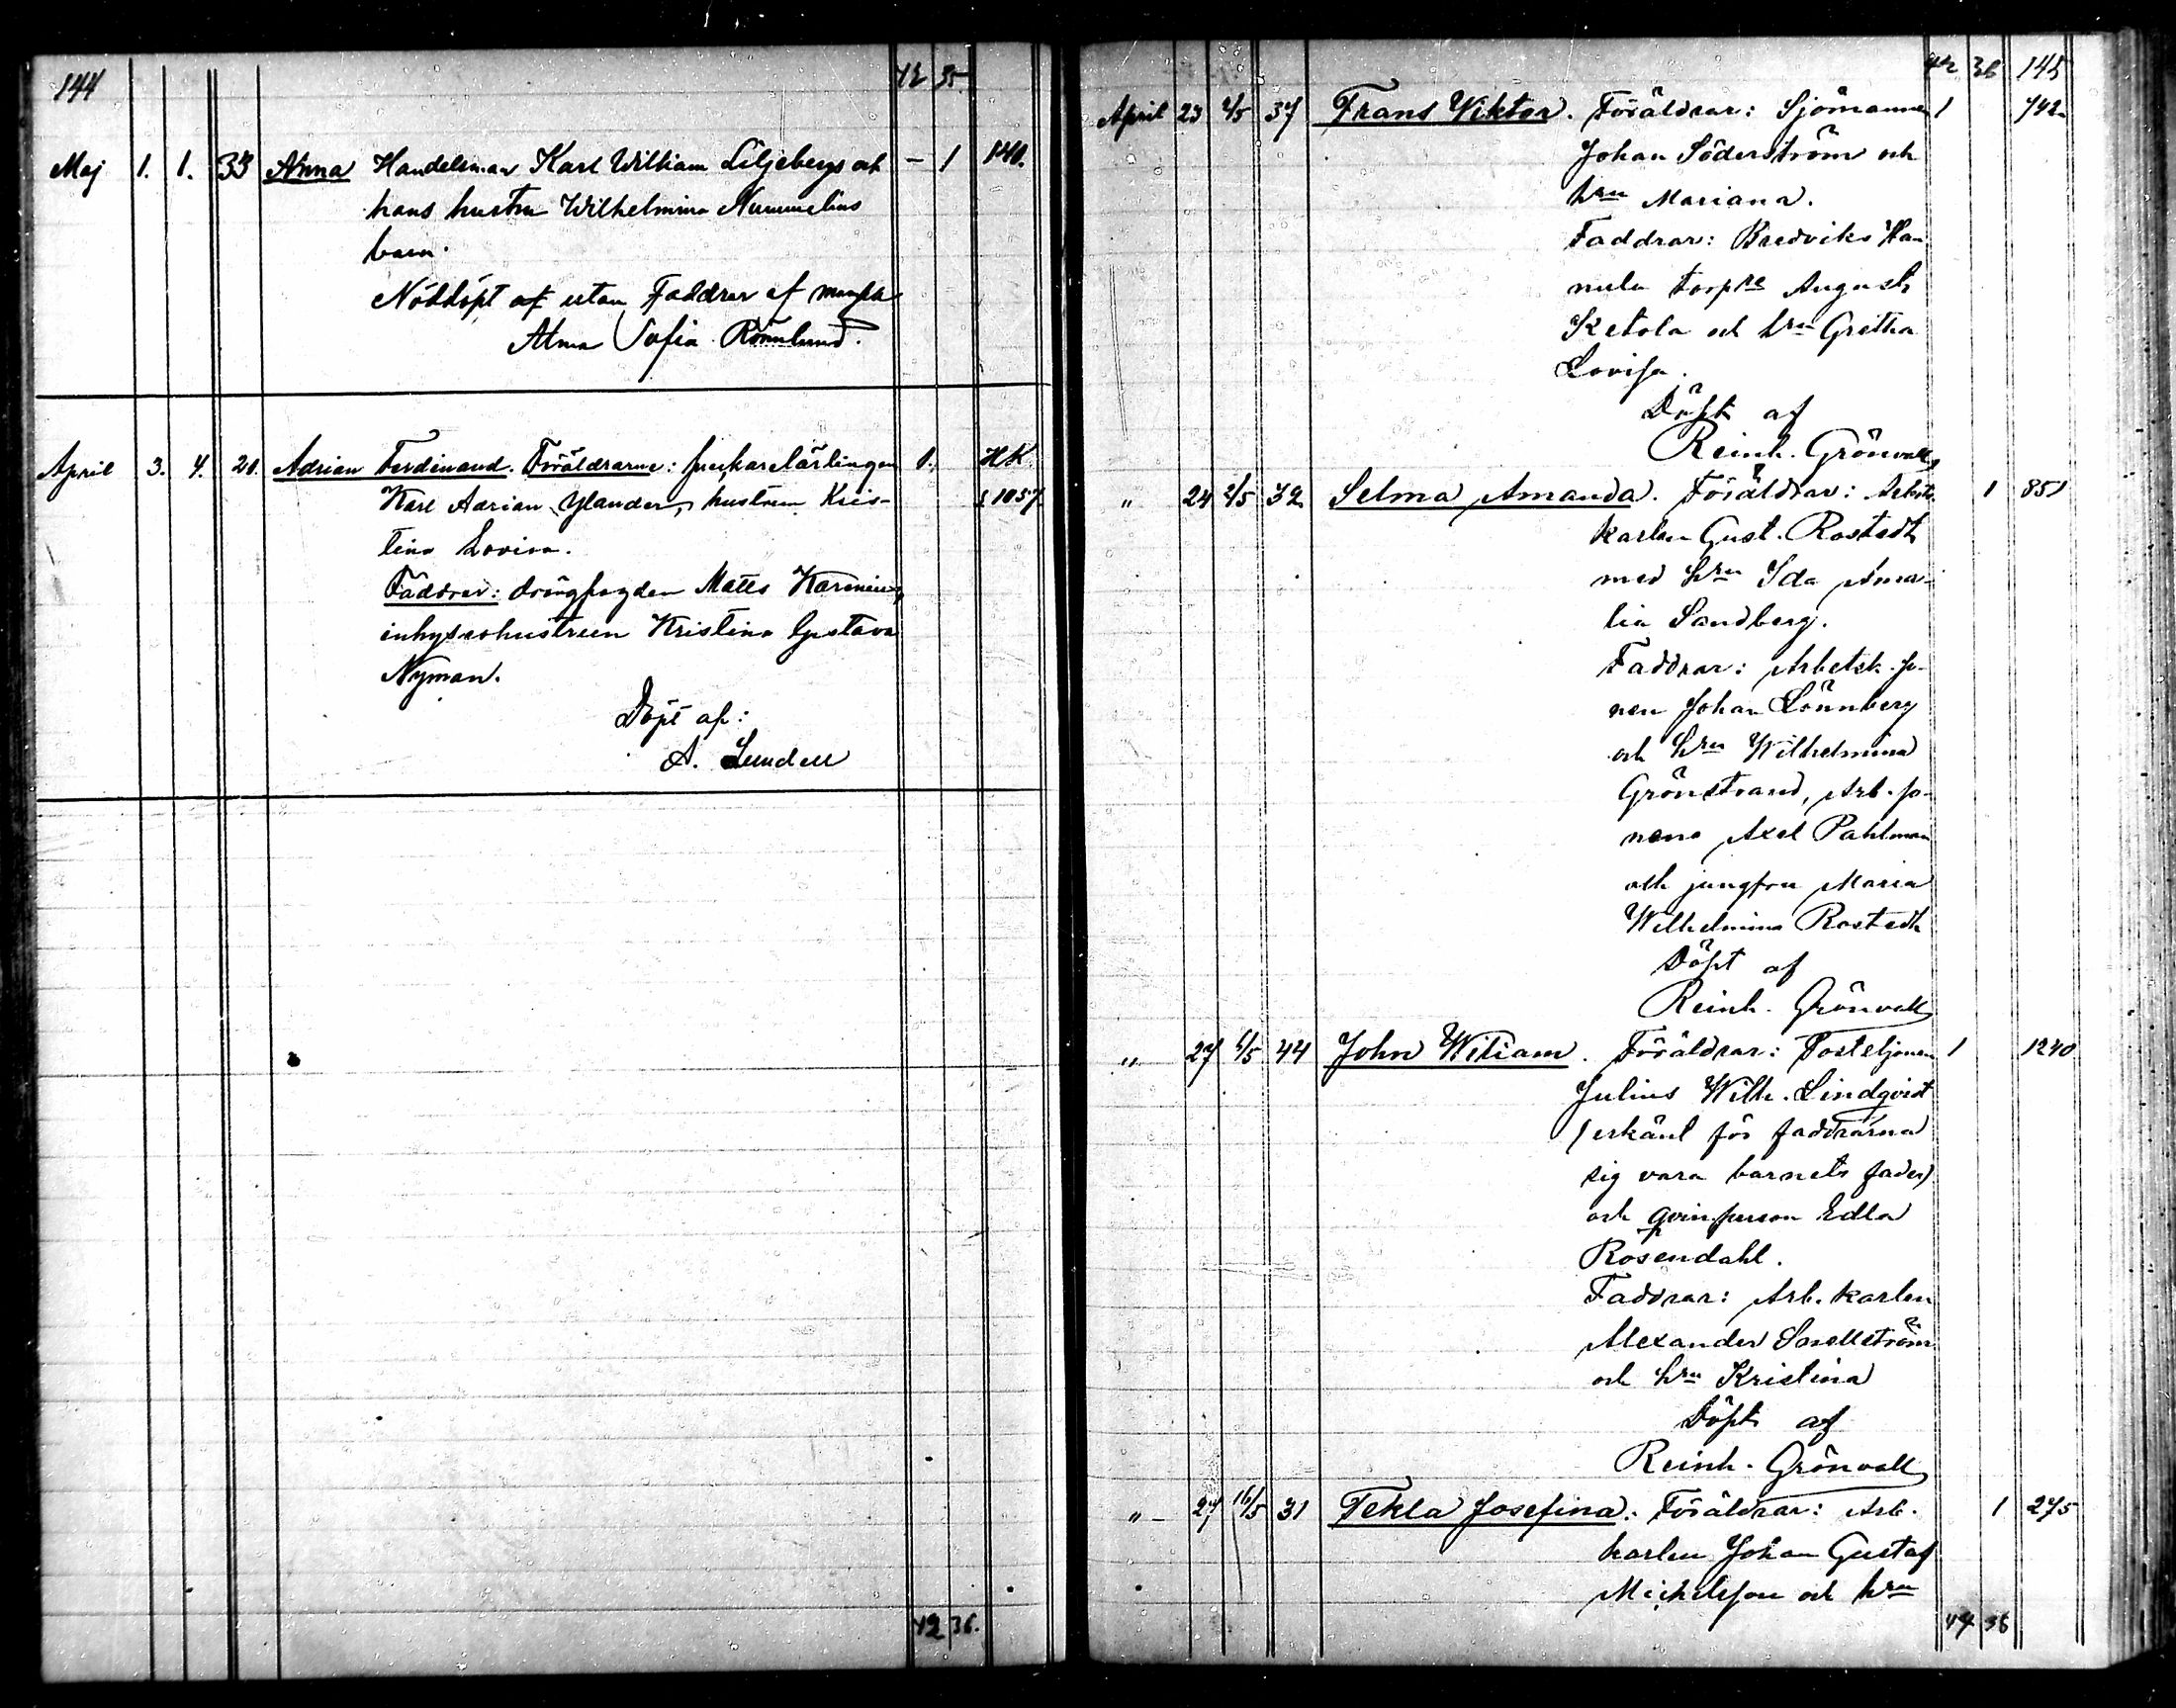 144 42 35.
Maj 1. 1. 33 Anna Handelsman Karl William Liljebergs och — 1 140.
hans hustru Wilhelmina Nummelins
barn.
Nöddöpt af utan Faddrar af
Alma Sofia Rönnlund.
April 3. 4. 20. Adrian Ferdinand. Föräldrarne: 1. HK.
Karl Adrian Ylander, hustrun Kris- S 1057
tina Lovisa.
Faddrar: drängfogden Matts
inhyseshustrun Kristina Gustava
Nyman.
Döpt af:
A. Lundell
42 36.
42 36 145
April 23 2/5 37 Frans Viktor. Föräldrar: Sjömannen 1 742
Johan Söderström och
hru Mariana.
Faddrar: Bredviks Han
nula torpre August
Ketola och hru Gretha
Lovisa.
Döpt af
Reinh. Grönvall
" 24 2/5 32 Selma Amanda. Föräldrar: Arbets. 1 851
karlen Gust. Rostedt
med hru Ida Ama-
lia Sandberg.
Faddrar: Arbetsk. so-
nen Johan Lönnberg
och hru Wilhelmina
Grönstrand, Arb. so-
nens Axel Pahlman
och jungfru Maria
Wilhelmina Rostedt
Döpt af
Reinh. Grönvall
" 27 /5 44 John Wiliam. Föräldrar: Posteljonen 1 1240
Julius Wilh. Lindqvist
(erkänt för faddrarna
sig vara barnets fader)
och qvinsperson Edla
Rosendahl.
Faddrar: Arb. karlen
Alexander
och hru Kristina
Döpt af
Reinh. Grönvall
" 27 16/5 31 Tekla Josefina. Föräldrar: Arb. 1 275
karlen Johan Gustaf
Michelsson och hru
44 38